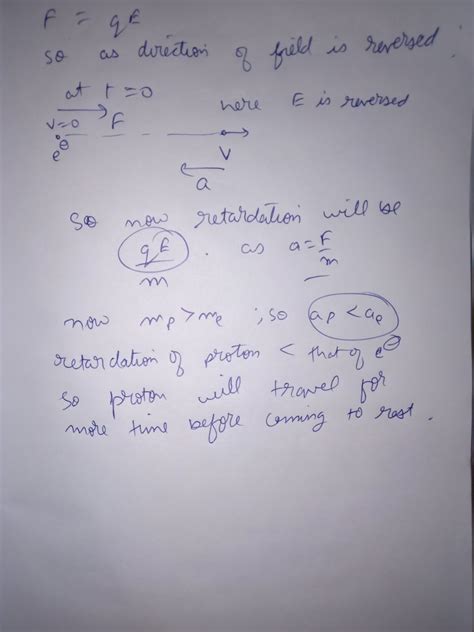 F = qE
so as direction of field is reversed
at t=0
here E is reversed
v=0 F
e⊖ v
a
So now retardation will be
qE/m . as a=F/m
now mp>me ; so ap<ae
retardation of proton < that of e⊖
so proton will travel for
more time before coming to rest.